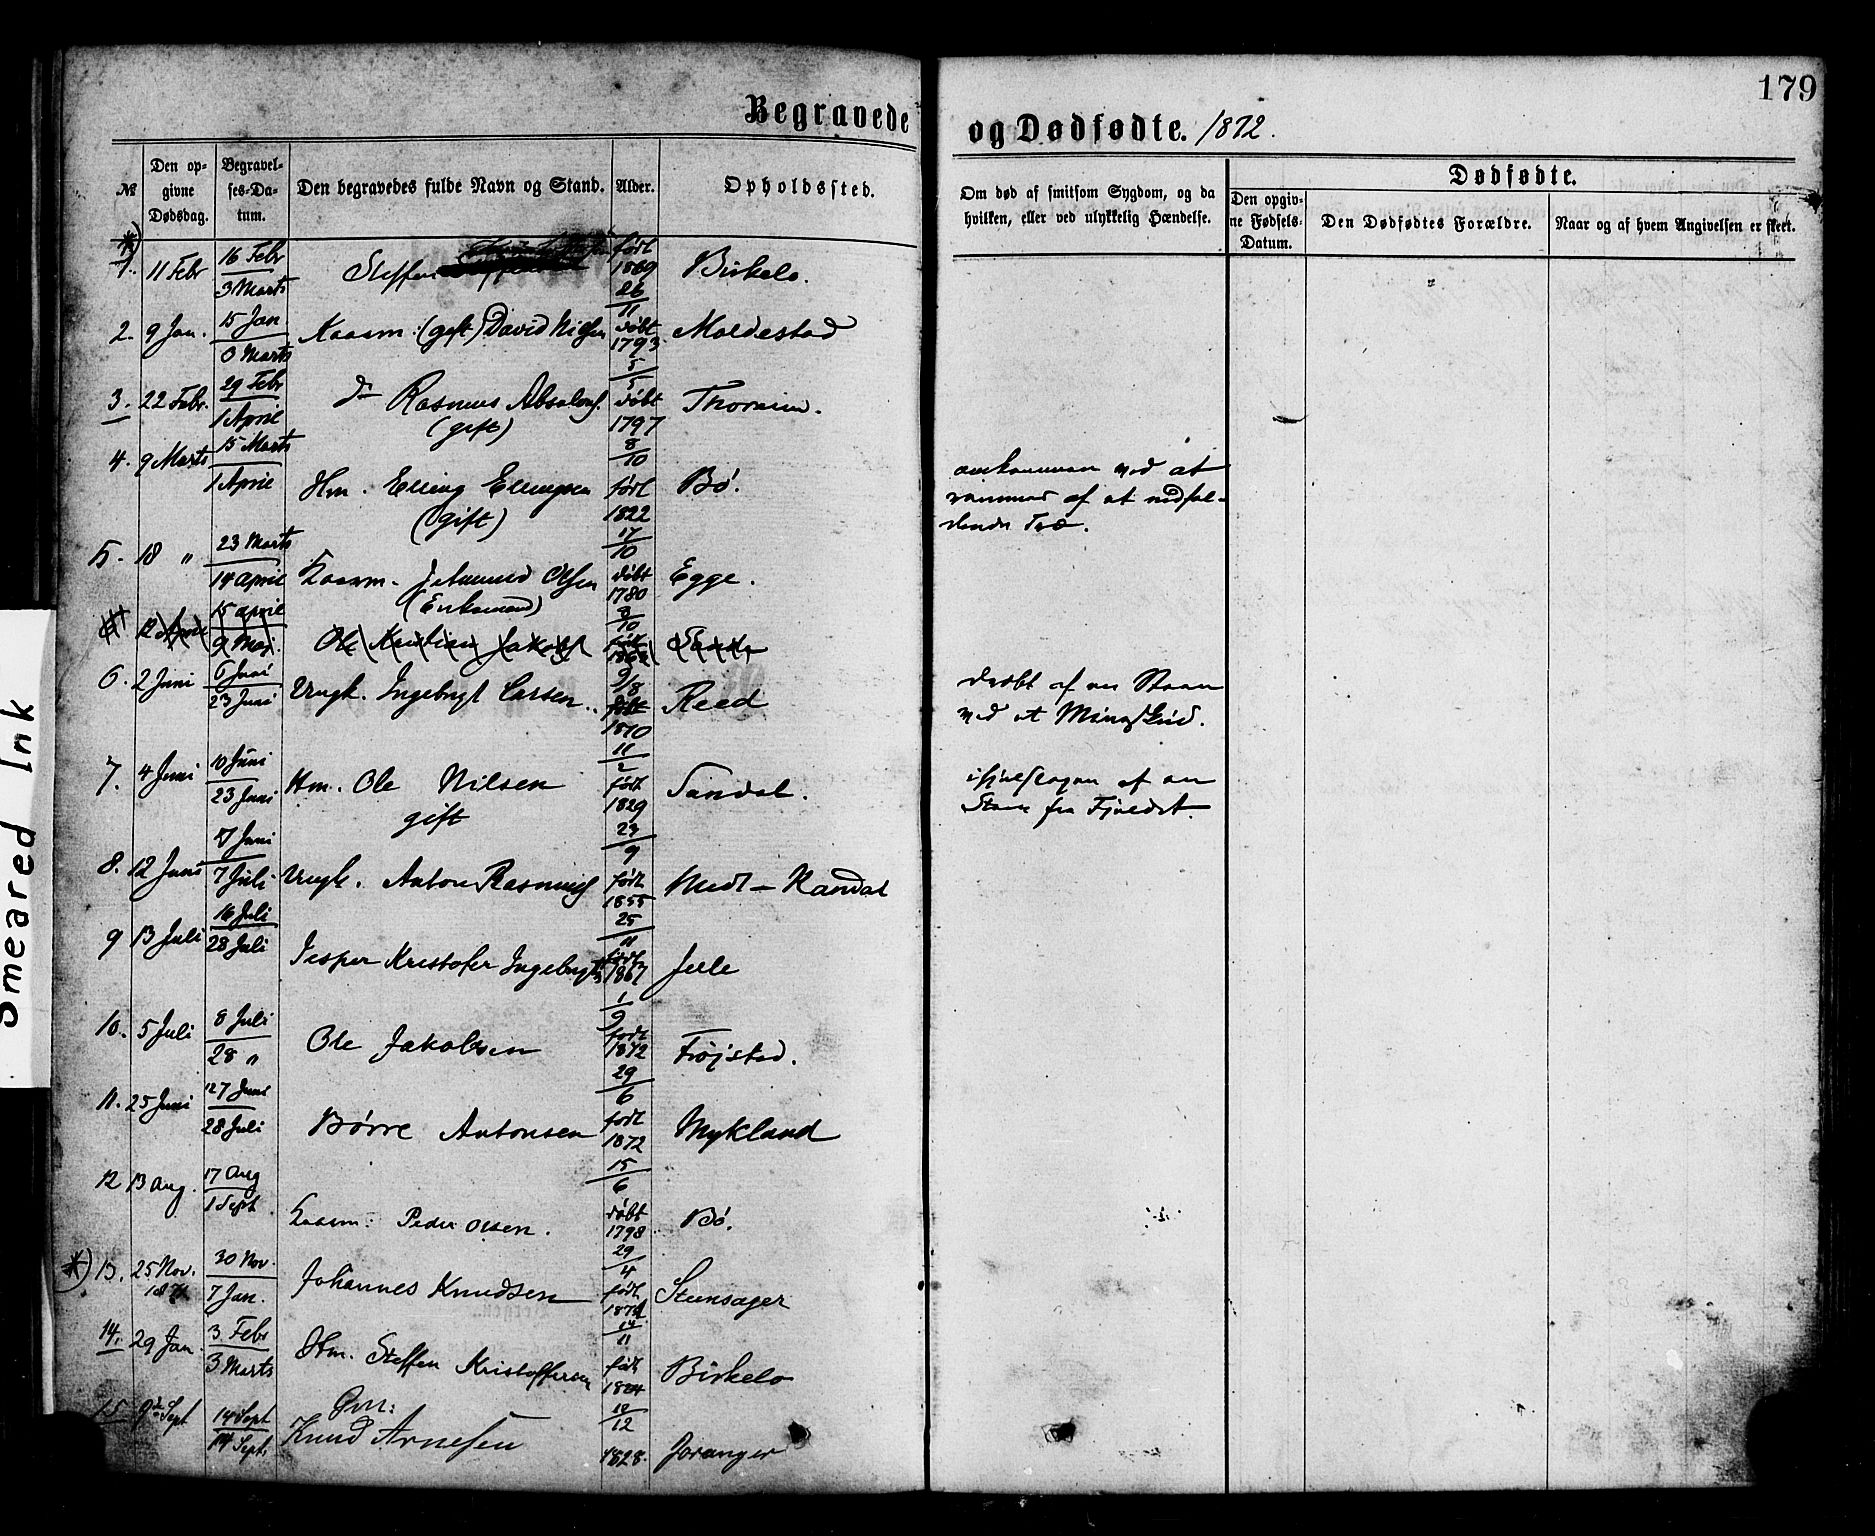 179
Begravede og Dødfødte. 1872.
№ Den opgivne Dødsdag. Begravelses-Datum. Den begravedes fulde Navn og Stand. Alder. Opholdssted. Om død af smitsom Sygdom, og da hvilken, eller ved ulykkelig Hændelse. Dødfødte.
Den opgivne Fødsels-Datum. Den Dødfødtes Forældre. Naar og af hvem Angivelsen er skeet.
*) 1. 11 Febr 16 Febr 3 Marts Steffen født 1869 26/11 Birkelo.
2. 9 Jan. 15 Jan 3 Marts Kaarm. (gift) David Nilsen døbt 1793 5/5 Moldestad
3. 22 Febr. 29 Febr 1 April do Rasmus Absalons. (gift) døbt 1797 8/10
4. 9 Marts 15 Marts 1 April Hm. Elling Ellingsen (gift) født 1822 17/10 Bø.
omkommen ved at
rammes af et nedfal-
dende Træ.
5. 18 " 23 Marts 14 April Kaarm. Olsen (Enkemand) døbt 1780 8/10 Egge.
12 April 15 April 9 Maj. Ole Kristian Jakobs født Sande
6. 2 Juni 6 Juni 23 Juni Ungk. Ingebrigt Larsen født 1870 11/2 Reed
dræbt af en Steen
ved et Mineskud.
7. 4 Juni 10 Juni 23 Juni Hm. Ole Nilsen gift født 1829 23/9 Sandal.
ihjelslagen af en
Steen fra Fjeldet.
8. 12 Juni 17 Juni 7 Juli Ungk. Anton Rasmus født 1855 25/11 Medt-Kandal
9 13 Juli 16 Juli 28 Juli Jesper Kristofer Ingebrigts født 1867 1/9 Jelle
10. 5 Juli 8 Juli 28 " Ole Jakobsen født 1872 29/6 Frøjstad.
11. 25 Juni 27 Juni 28 Juli Børre Antonsen født 1872 15/6 Mykland
12 13 Aug. 17 Aug 1 Sept. Kaarm: Peder Olsen. døbt 1798 29/4 Bø.
*) 13. 25 Nov. 1871 30 Nov. 7 Jan. Johannes Knudsen født 1871 14/11 Steensager
14. 29 Jan. 3 Febr 3 Marts Hm. Steffen Kristoffersen født 1824 10/12 Birkelo
15 9de Sept 14 Sept 14 Sept. Gm: Knud Arnesen 1828. Joranger
Smeared Ink